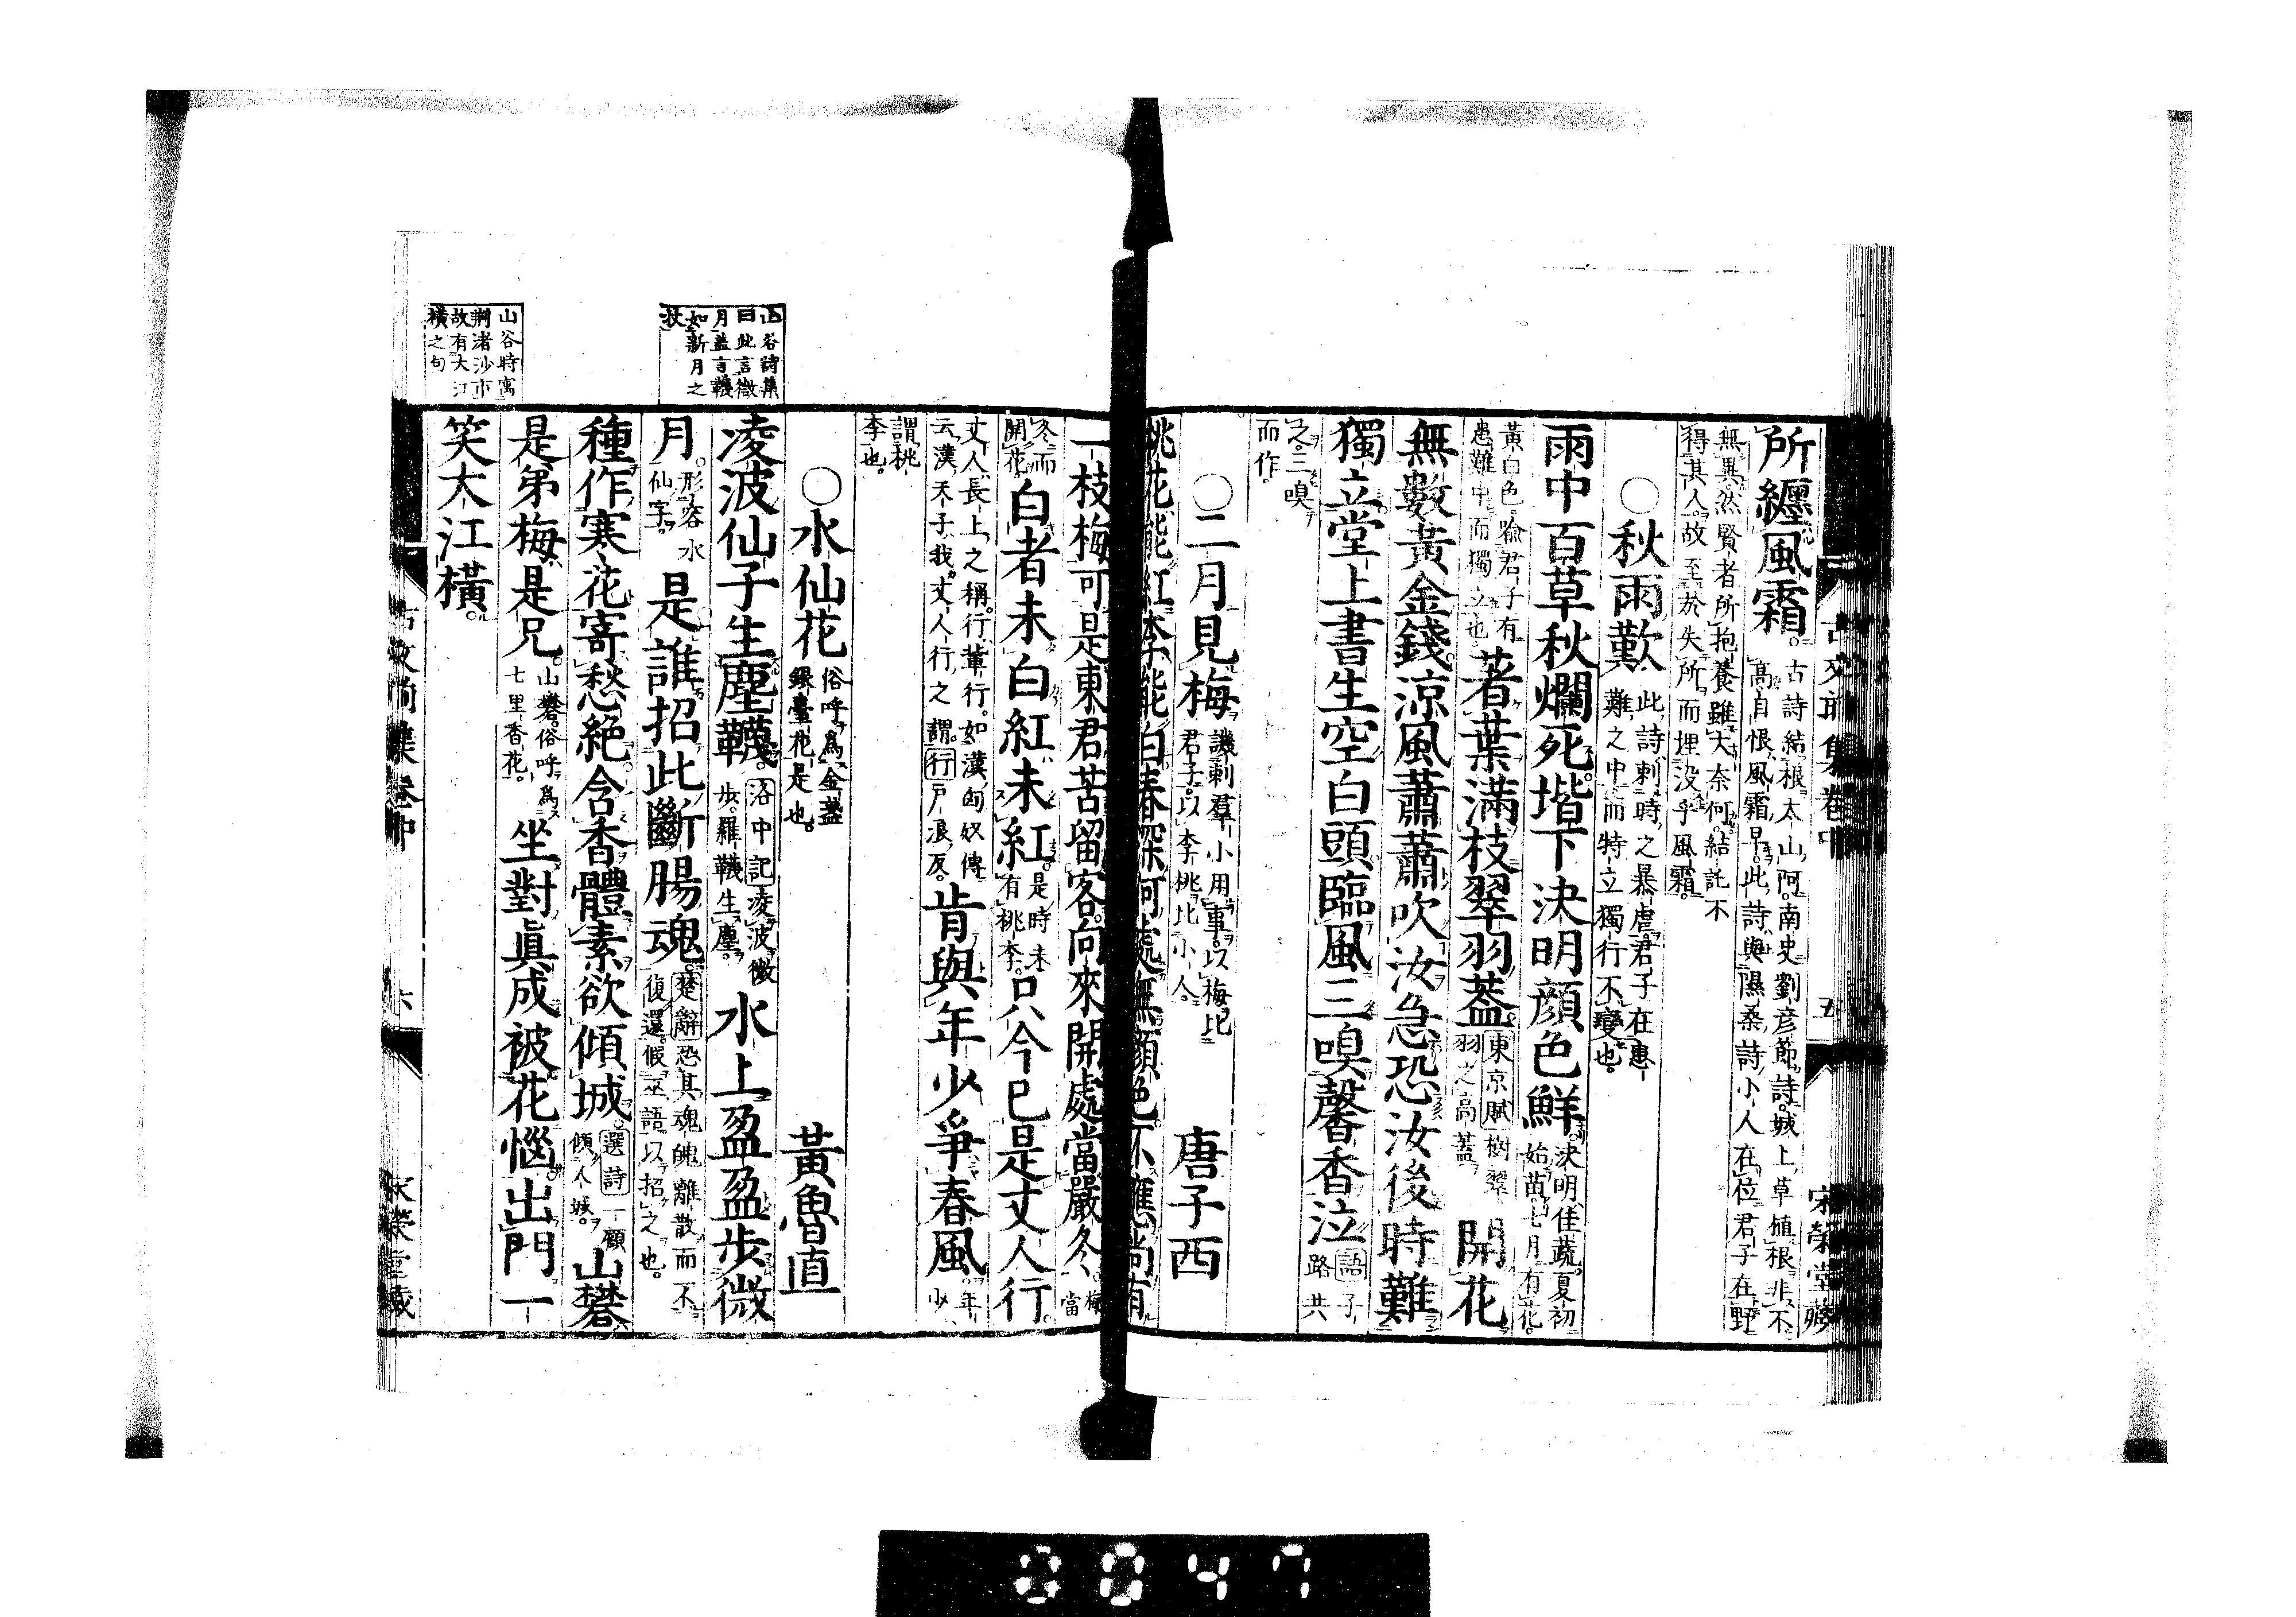 所纒風霜。古詩結根太山阿。南史劉彦節詩。城上草植根非不
高自恨風霜早。此詩與隰桑詩小人在位君子在野
無異然賢者所抱養雖大奈何結託不
得其人故至於失所而埋没乎風霜。
〇秋雨歎 此詩刺時之暴虐君子在患
難之中而特立獨行不變也。
雨中百草秋爛死。堦下決明顔色鮮。決明佳蔬。夏初
始苗七月有花。
黃白色。喩君子有
患難中而獨立也
著葉滿枝翠羽蓋。東京賦樹翠
羽之高蓋
開花
無數黃金錢。涼風蕭蕭吹汝急恐汝後時難
獨立堂上書生空白頭臨風三嗅馨香泣 語子
路共
之。三嗅
而作。
〇二月見梅 譏刺羣小用事。以梅比
君子。以李桃比小人。
唐子西
桃花能紅李能白春深何處無顔色不應尚有
一枝梅可是東君苦留客向來開處當嚴冬 梅
當
冬而
開花。
白者未白紅未紅。是時未
有桃李。
只今已是丈人行。
丈人長上之稱。行輩行。如漢匈奴傳
云漢天子我丈人行之謂。行戸浪反。
肯與年少爭春風。年
少
謂桃
李也。
〇水仙花 俗呼爲金盞
銀臺花是也。
黃魯直
凌波仙子生塵韈。洛中記凌波微
步。羅韈生塵。
水上盈盈步微
月。形容水
仙字。
是誰招此斷腸魂。楚辭恐其魂魄離散而不
復還。假巫語以招之也。
種作寒花寄愁絶含香體素欲傾城。選詩一顧
傾人城。
山礬
是弟梅是兄。山礬。俗呼爲
七里香花。
坐對眞成被花惱出門一
笑大江橫。
山谷詩集
曰此言微
月蓋言韈
如新月之
狀
山谷時寓
荆渚沙市
故有大江
橫之句
古文前集卷中
五
宋榮堂藏
古文前集卷中
六
宋榮堂藏
0047